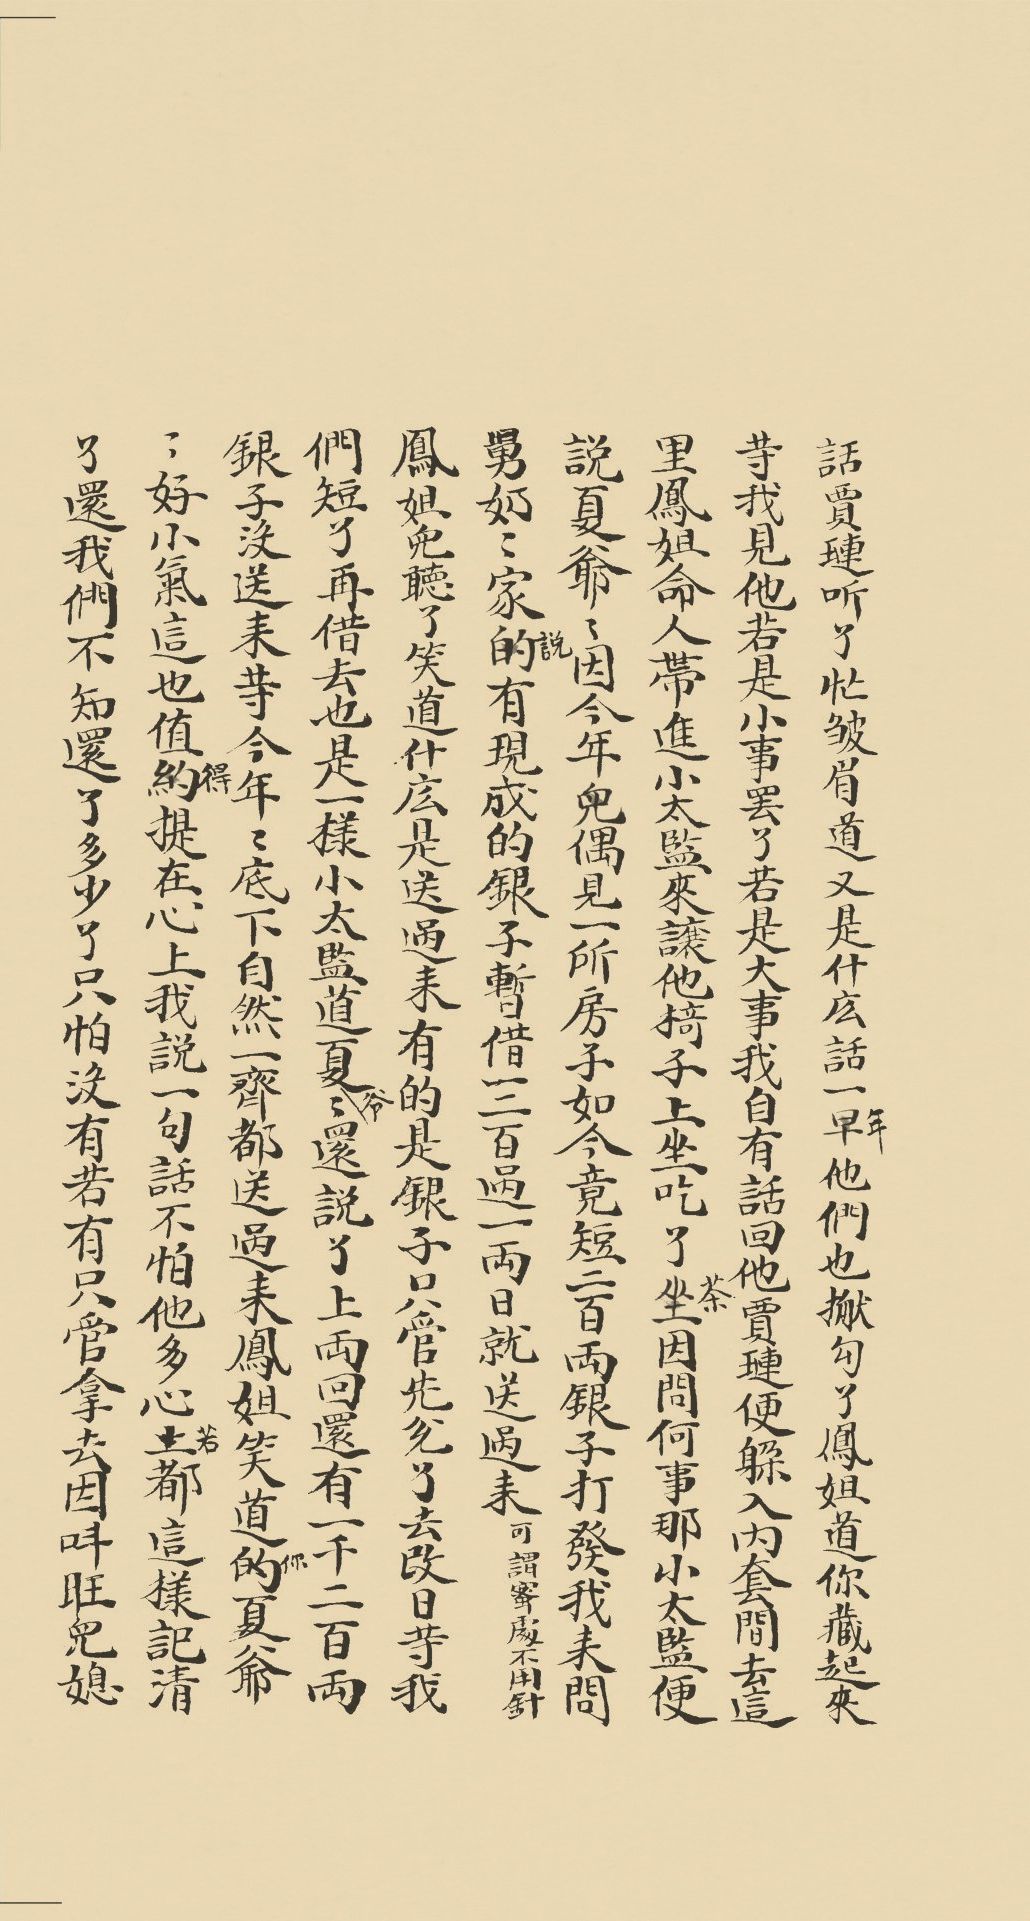 話賈璉听了忙皱眉道又是什庅話一早他們也揻勾了鳳姐道你藏起來
年
等我見他若是小事罢了若是大事我自有話回他賈璉便躲入内套間去這
里鳳姐命人帶進小太監來讓他椅子上坐吃了坐因問何事那小太監便
茶
説夏爺〻因今年兜偶見一所房子如今竟短二百両銀子打發我来問
舅奶〻家的有現成的銀子暫借一二百過一両日就送過来可謂寗處不用針
説
鳳姐兜聴了笑道什庅是送過来有的是銀子只管先兊了去改日等我
們短了再借去也是一樣小太監道夏〻還説了上両回還有一千二百両
爷
銀子没送来等今年〻底下自然一齊都送過来鳳姐笑道的夏爺
你
〻好小氣這也值約提在心上我説一句話不怕他多心土都這樣記清
得
若
了還我們不知還了多少了只怕没有若有只管拿去因呌旺兜媳